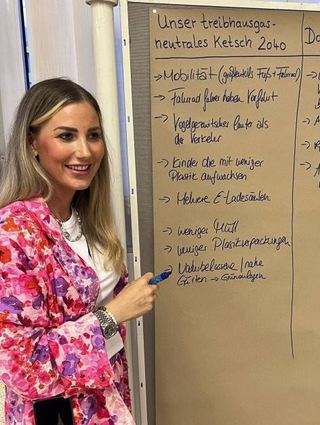 Unser treibhausgas-
neutrales Ketsch 2040
→ Mobilität (größtenteils Fuß + Fahrrad)
→ Fahrradfahrer haben Vorfahrt
→ Vogelgezwitscher lauter als
der Verkehr
→ Kinder die mit weniger
Plastik aufwachsen
→ Mehrere E-Ladesäulen
→ weniger Müll
→ weniger Plastikverpackungen
→ Naturbelassene / nahe
Gärten → Grünanlagen